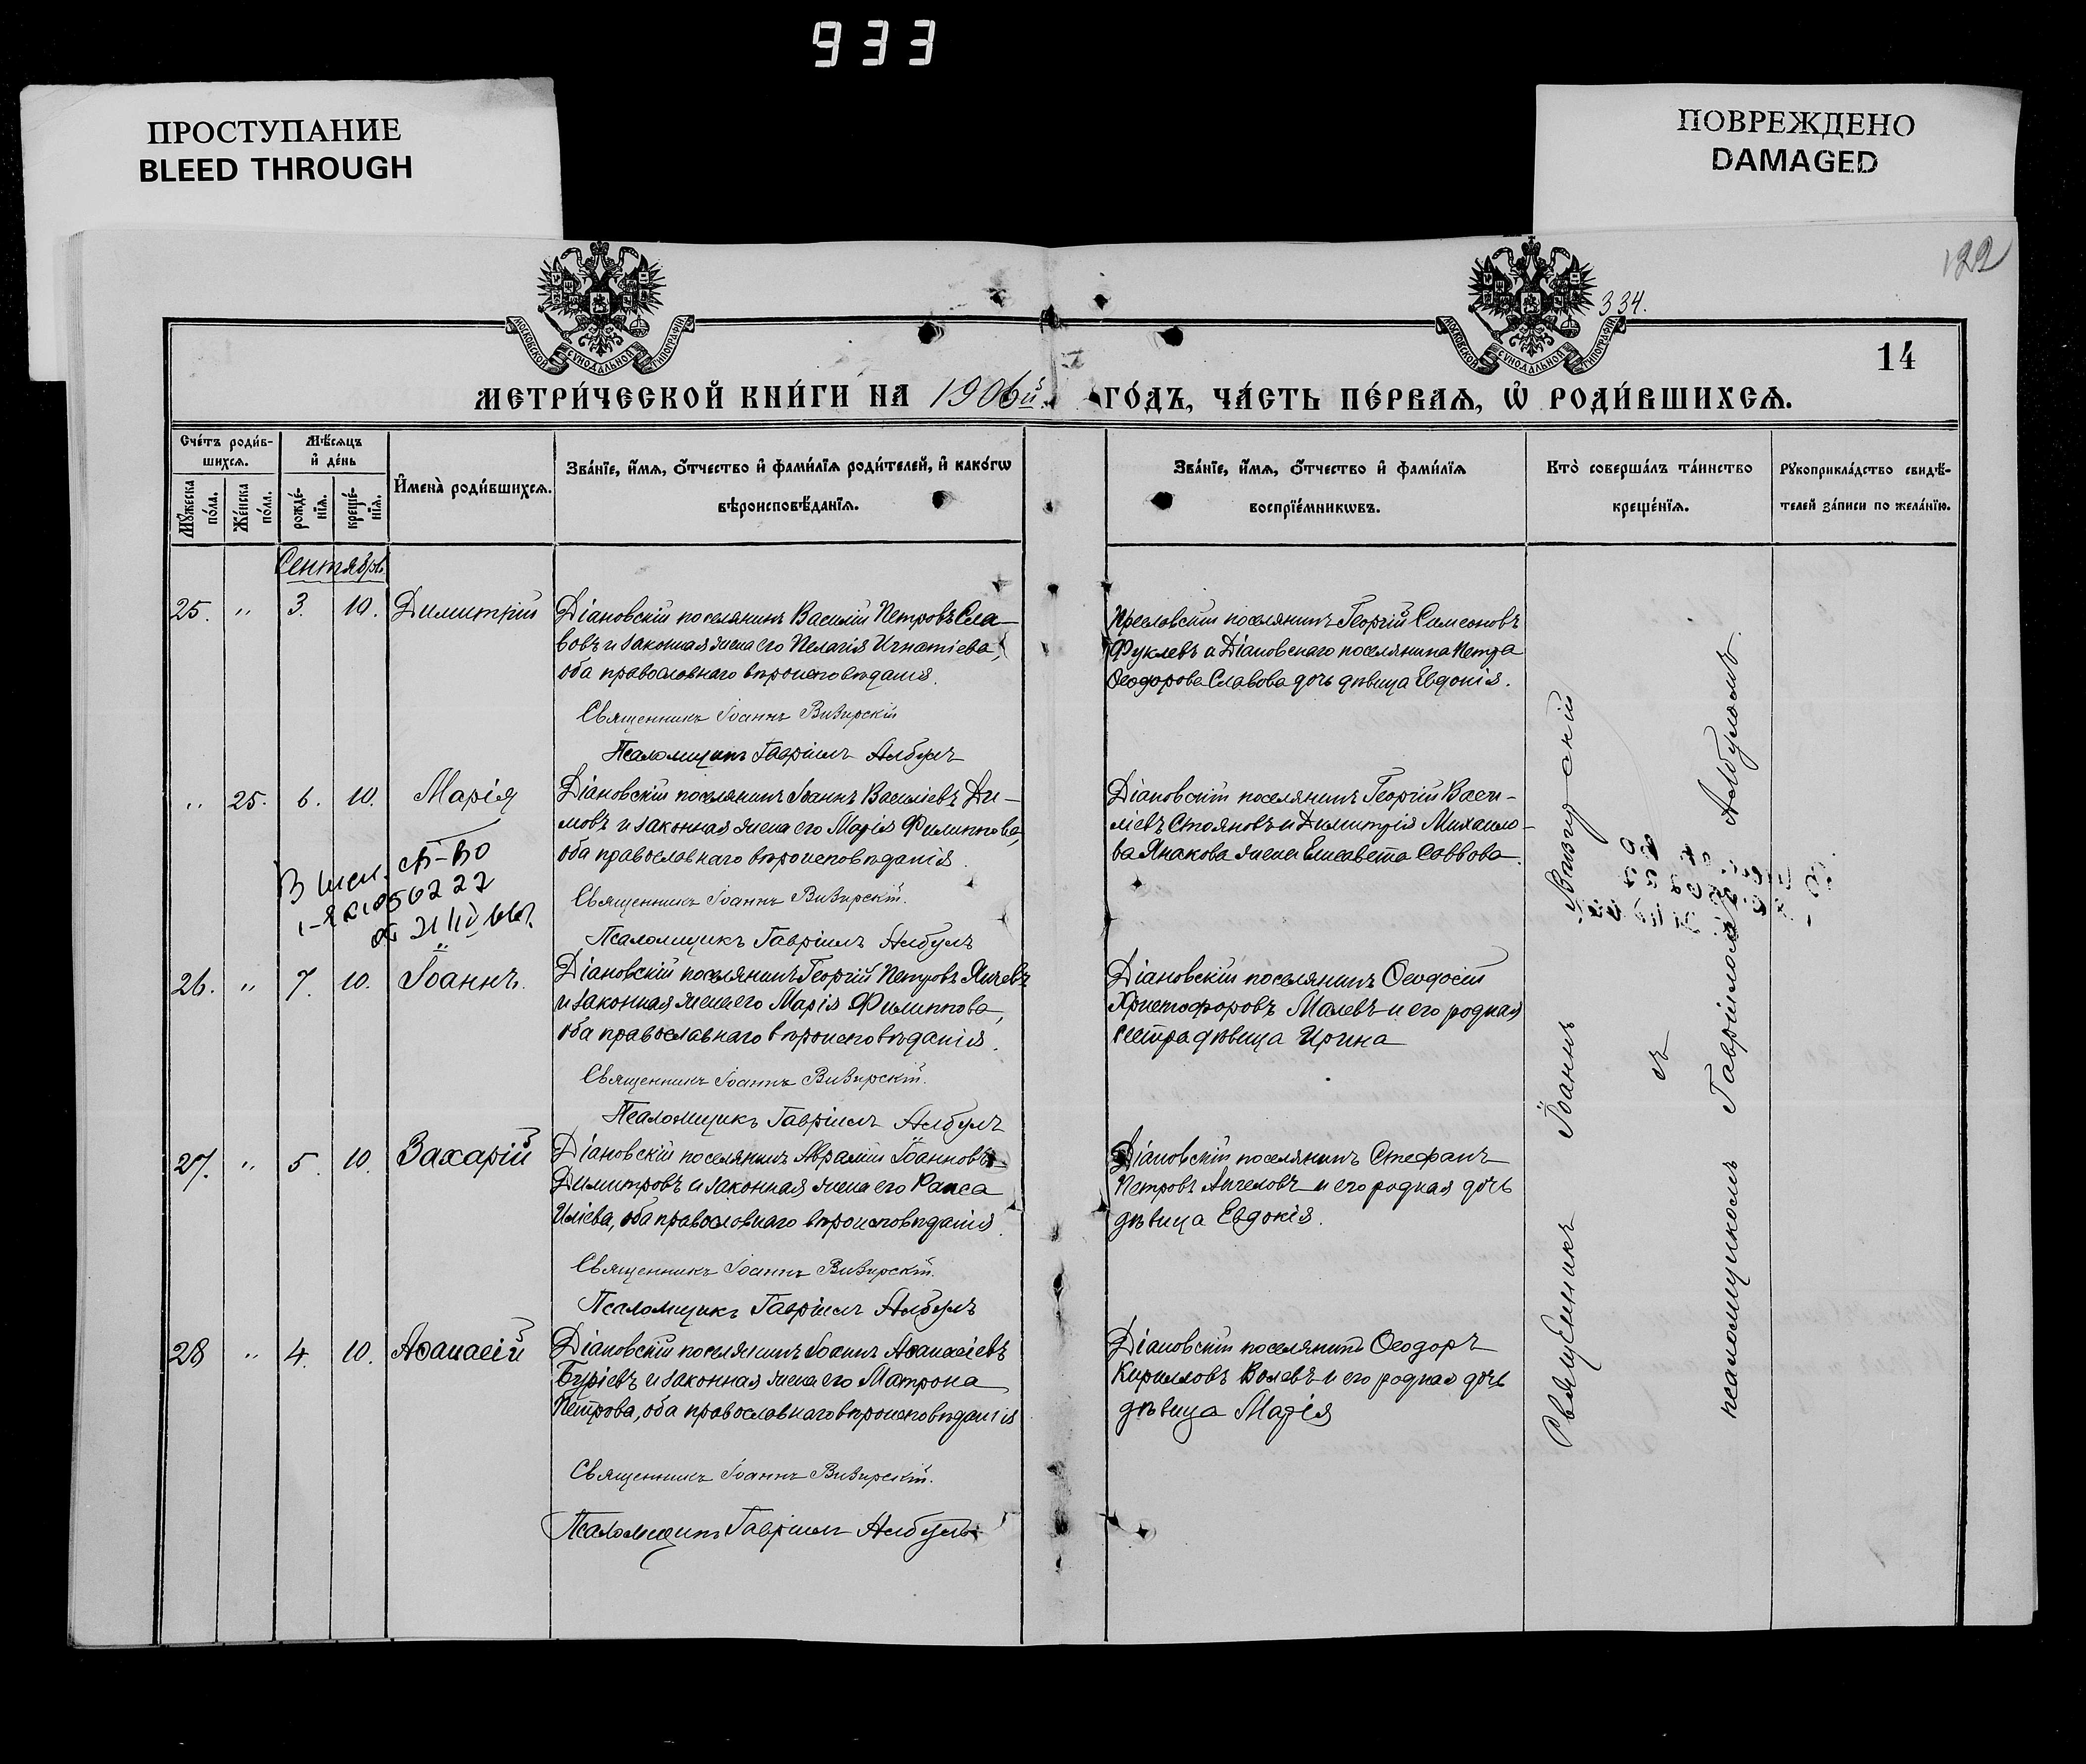 933
ПРОСТУПАНИЕ
BLEED THROUGH
ПОВРЕЖДЕНО
DAMAGED
122
334.
МОСКОВСКОЙ СѴНОДАЛЬНОЙ ТИПОГРАФІИ
МОСКОВСКОЙ СѴНОДАЛЬНОЙ ТИПОГРАФІИ
14
МЕТРИ́ЧЕСКОЙ КНИ́ГИ НА 1906й ГО́ДЪ, ЧА́СТЬ ПЕ́РВАѦ, Ѡ҆ РОДИ́ВШИХСѦ.
Сче́тъ роди́в-
шихсѧ.
Мѣ́сѧцъ
и҆ де́нь
И҆мена̀ роди́вшихсѧ.
Зва́нїе, и҆́мѧ, ѻ҆́тчество и҆ фами́лїѧ роди́телей, и҆ како́гѡ
вѣроисповѣ́данїѧ.
Зва́нїе, и҆́мѧ, ѻ҆́тчество и҆ фами́лїѧ
воспрїе́мникѡвъ.
Кто̀ соверша́лъ та́инство
креще́нїѧ.
Рꙋкоприкла́дство свидѣ́-
телей за́писи по жела́нїю.
Мꙋ́жеска
по́ла.
Же́нска
по́лл.
рожде́-
нїѧ.
креще́-
нїѧ.
Сентябрь
25. " 3. 10. Димитрій
Діановскій поселянинъ Василій Петровъ Сла-
вовъ и законная жена его Пелагія Игнатіева,
оба православнаго вѣроисповѣданія.
Священникъ Іоаннъ Визирскій
Псаломщикъ Гавріилъ Албулъ
поселянинъ Георгій Симеоновъ
Фуклевъ и Діановскаго поселянина Петра
Ѳеодорова Славова дочь дѣвица Евдокія.
" 25. 6. 10. Марія
Діановскій поселянинъ Іоаннъ Василіевъ Ди-
мовъ и законная жена его Марія Филиппова,
оба православнаго вѣроисповѣданія.
Священникъ Іоаннъ Визирскій.
Псаломщикъ Гавріилъ Албулъ
Діановскій поселянинъ Георгій Васи-
ліевъ Стояновъ и Димитрія Михаило-
ва Янакова жена Елисавета Саввова.
СБ-ВО
26. " 7. 10. Іоаннъ.
Діановскій поселянинъ Георгій Петровъ Янчевъ
и законная жена его Марія Филиппова,
оба православнаго вѣроисповѣданія.
Священникъ Іоаннъ Визирскій.
Псаломщикъ Гавріилъ Албулъ
Діановскій поселянинъ Ѳеодосій
Христофоровъ Малевъ и его родная
сестра дѣвица Ирина
27. " 5. 10. Захарій
Діановскій поселянинъ Аврамій Іоанновъ
Димитровъ и законная жена его Раиса
Иліева, оба православнаго вѣроисповѣданія.
Священникъ Іоаннъ Визирскій.
Псаломщикъ Гавріилъ Албулъ
Діановскій поселянинъ Стефанъ
Петровъ Ангеловъ и его родная дочь
дѣвица Евдокія.
28 " 4. 10. Аѳанасій
Діановскій поселянинъ Іоаннъ Аѳанасіевъ
Буріевъ и законная жена его Матрона
Петрова, оба православнаго вѣроисповѣданія
Священникъ Іоаннъ Визирскій.
Псаломщикъ Гавріилъ Албулъ
Діановскій поселянинъ Ѳеодоръ
Кирилловъ Волевъ и его родная дочь
дѣвица Марія
Священникъ Іоаннъ Визирскій
съ
псаломщикомъ Гавріиломъ Албуломъ.